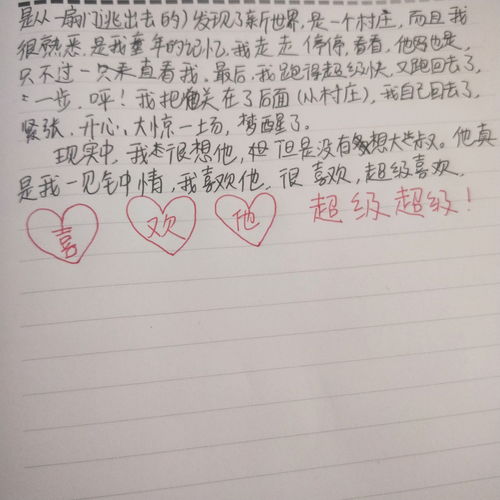 是从一扇门逃出去的)发现了新世界,是一个村庄,而且我
很熟悉,是我童年的记忆,我走走停停,看看,他也是,
只不过一只来直看我,最后,我跑得超级快,又跑回去了,
一步,呯!我把他关在了后面(从村庄),我自己回去了,
紧张,开心,大惊一场,梦醒了。
现实中,我很想他,但是没有想大叔。他真
是我一见钟情,我喜欢他,很喜欢,超级喜欢,
喜 欢 他 超级超级!